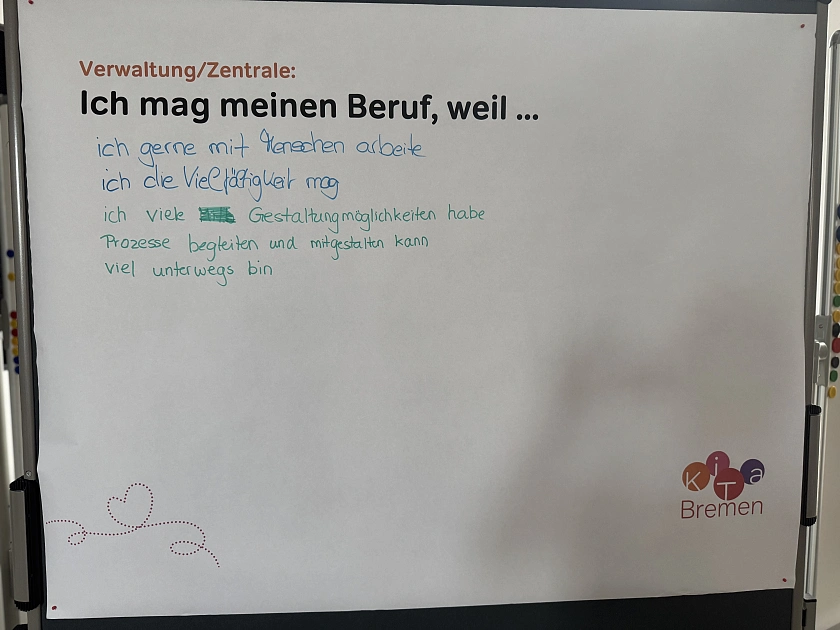 Verwaltung/Zentrale:
Ich mag meinen Beruf, weil ...
ich gerne mit Menschen arbeite
ich die Vielfältigkeit mag
ich viele Gestaltungmöglichkeiten habe
Prozesse begleiten und mitgestalten kann
viel unterwegs bin
KiTa
Bremen